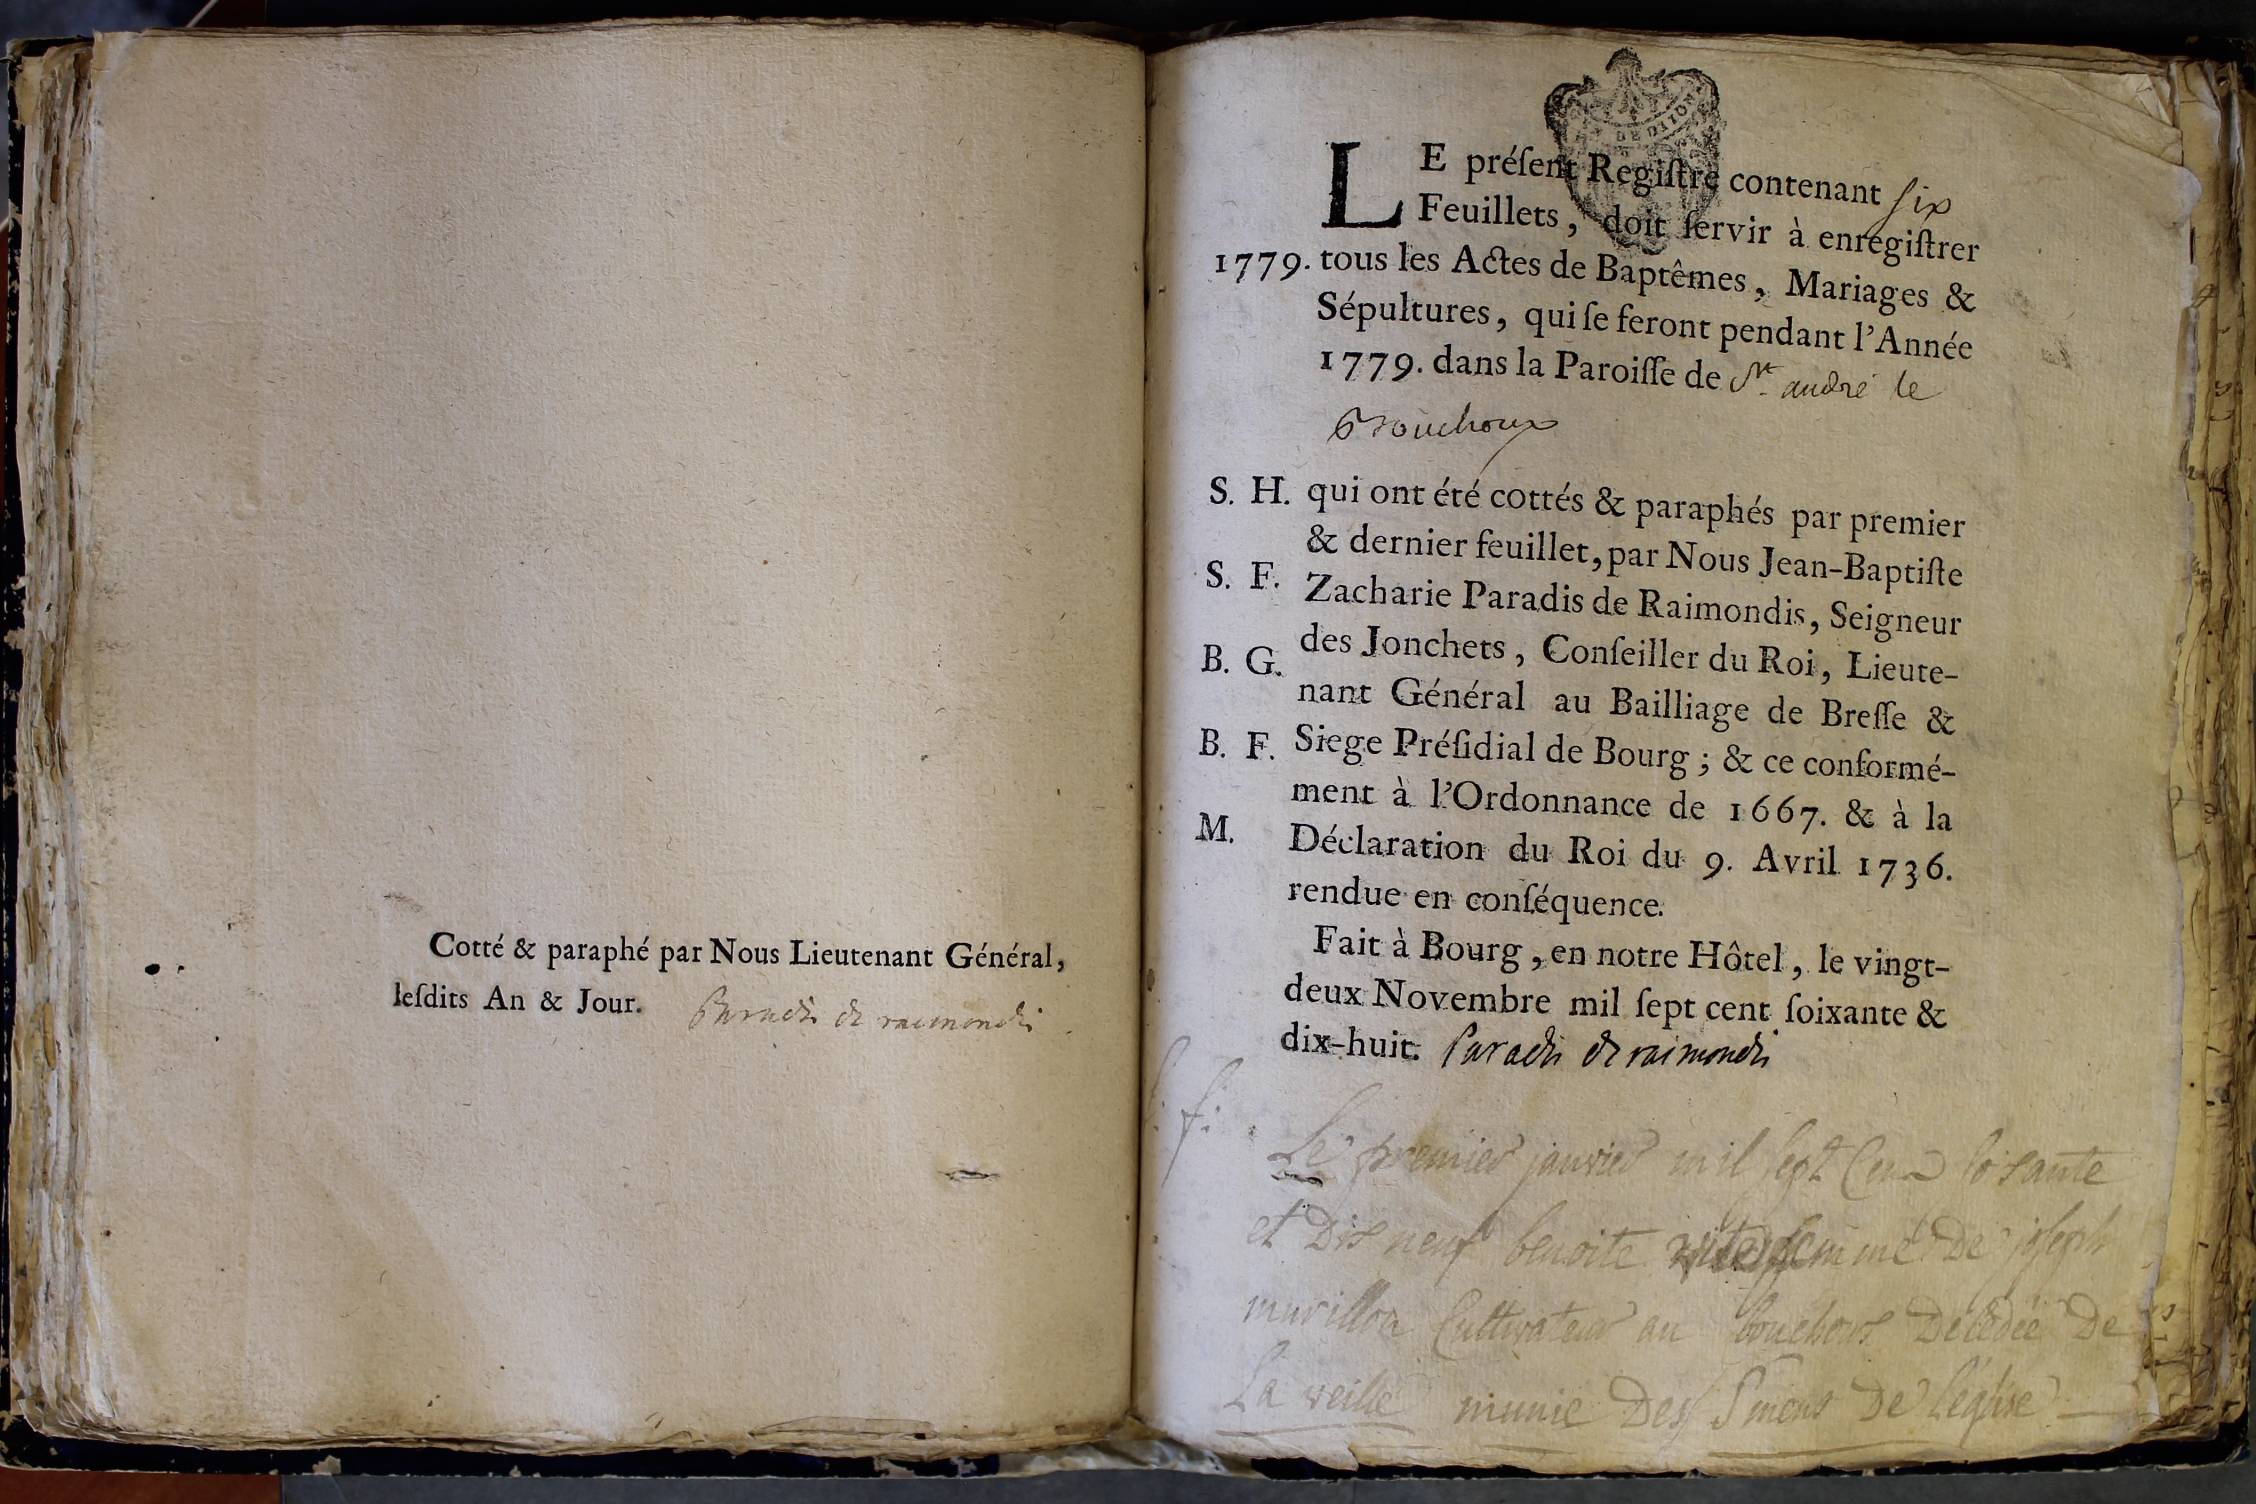 Cotté & paraphé par Nous Lieutenant Général,
leſdits An & Jour. Paradis de raimondis
DE DIJON
LE préſent Regiſtre contenant six
Feuillets, doit ſervir à enregiſtrer
1779. tous les Actes de Baptêmes, Mariages &
Sépultures, qui ſe feront pendant l'Année
1779. dans la Paroiſſe de St. andré le
Bouchoux
S. H. qui ont été cottés & paraphés par premier
& dernier feuillet, par Nous Jean-Baptiſte
S. F. Zacharie Paradis de Raimondis, Seigneur
des Jonchets, Conſeiller du Roi, Lieute-
B. G. nant Général au Bailliage de Breſſe &
B. F. Siege Préſidial de Bourg; & ce conformé-
ment à l'Ordonnance de 1667. & à la
M. Déclaration du Roi du 9. Avril 1736.
rendue en conſéquence.
Fait à Bourg, en notre Hôtel, le vingt-
deux Novembre mil ſept cent ſoixante &
dix-huit. Paradis de raimondis
f:
Le premier janvier mil sept Cent soisante
et Dis neuf benoite femme De joseph
murillon Cultivateur au bouchous Decedée De
La veille munie Des De l'église